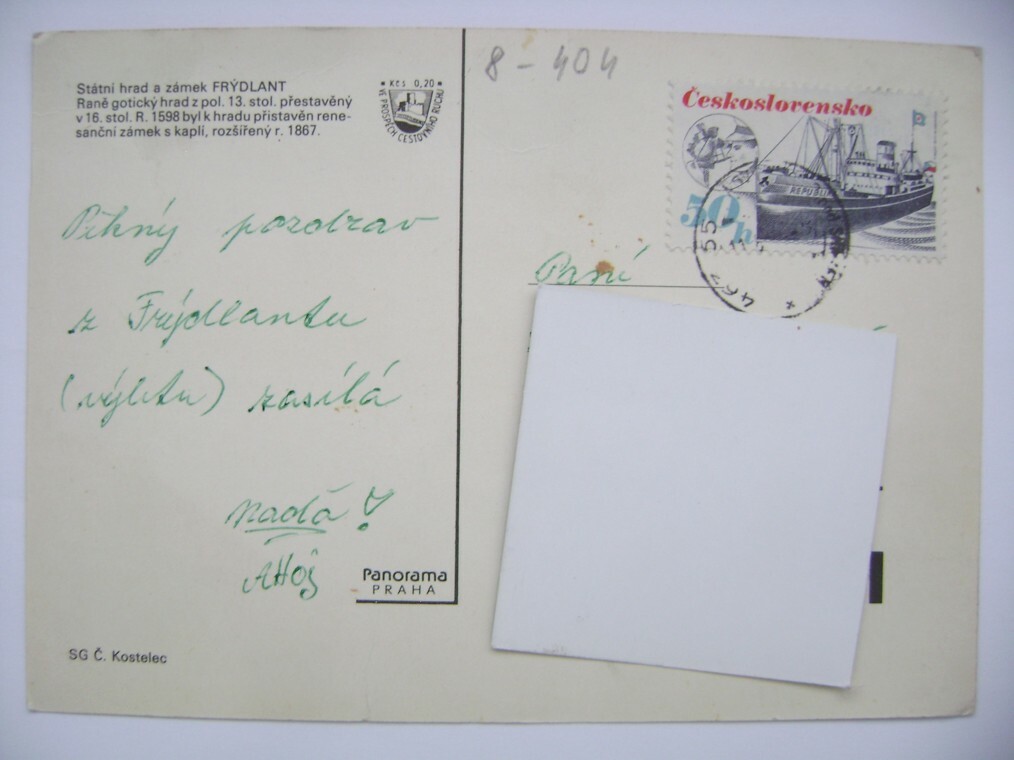 Státní hrad a zámek FRÝDLANT
Raně gotický hrad z pol. 13. stol. přestavěný
v 16. stol. R. 1598 byl k hradu přistavěn rene-
sanční zámek s kaplí, rozšířený r. 1867.
• Kčs 0,20 •
VE PROSPĚCH CESTOVNÍHO RUCHU
8 - 404
Československo
REPUBLIKA
50h
463 55
Pěkný pozdrav
z Frýdlantu
(výletu) zasílá
Naďa!
AHOJ
Paní
Panorama
PRAHA
SG Č. Kostelec